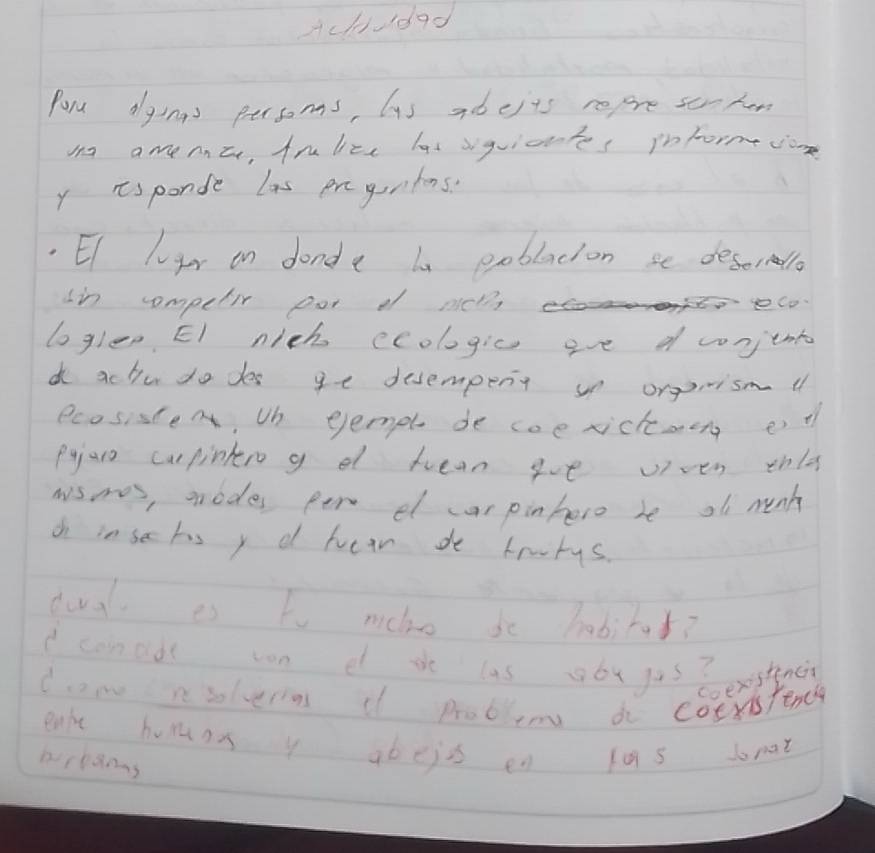 Actividad
Para algunas personas, las abejas representan
una amenaza, Analiza las siguientes informacione
y responde las preguntas.
• El lugar en donde la poblacion se desarrolla
sin competir por el nicho eco-
logico. El nicho ecologico que el conjunto
de actividades qe desempeña un organismo el
ecosistema, un ejemplo de coexistencia es el
pajaro carpintero y el tucan que viven en las
mismos, arboles pero el carpintero se alimenta
de insectos y el tucan de frutas.
¿cual es tu nicho de habitat?
¿coincide con el de las abejas?
¿como resolverias el problema de coexistencia coexistencia
entre humanos y abejas en las zonas
urbanas